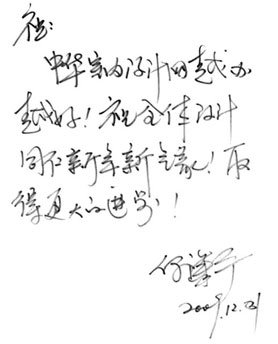 祝：
中华室内设计网越办
越好！祝全体设计
同仁新年新气象！取
得更大的进步！
2009.12.21